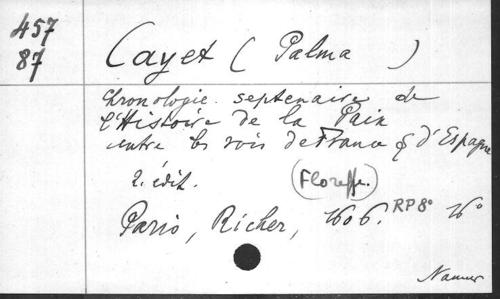 457
87
Cayet ( Palma )
Chronologie septenaire de
l'Histoire de la Paix
entre les rois de France & d'Espagne
2. édit. (Floreffe.)
Paris, Richer, 1606. RP 8° 16°
Namur